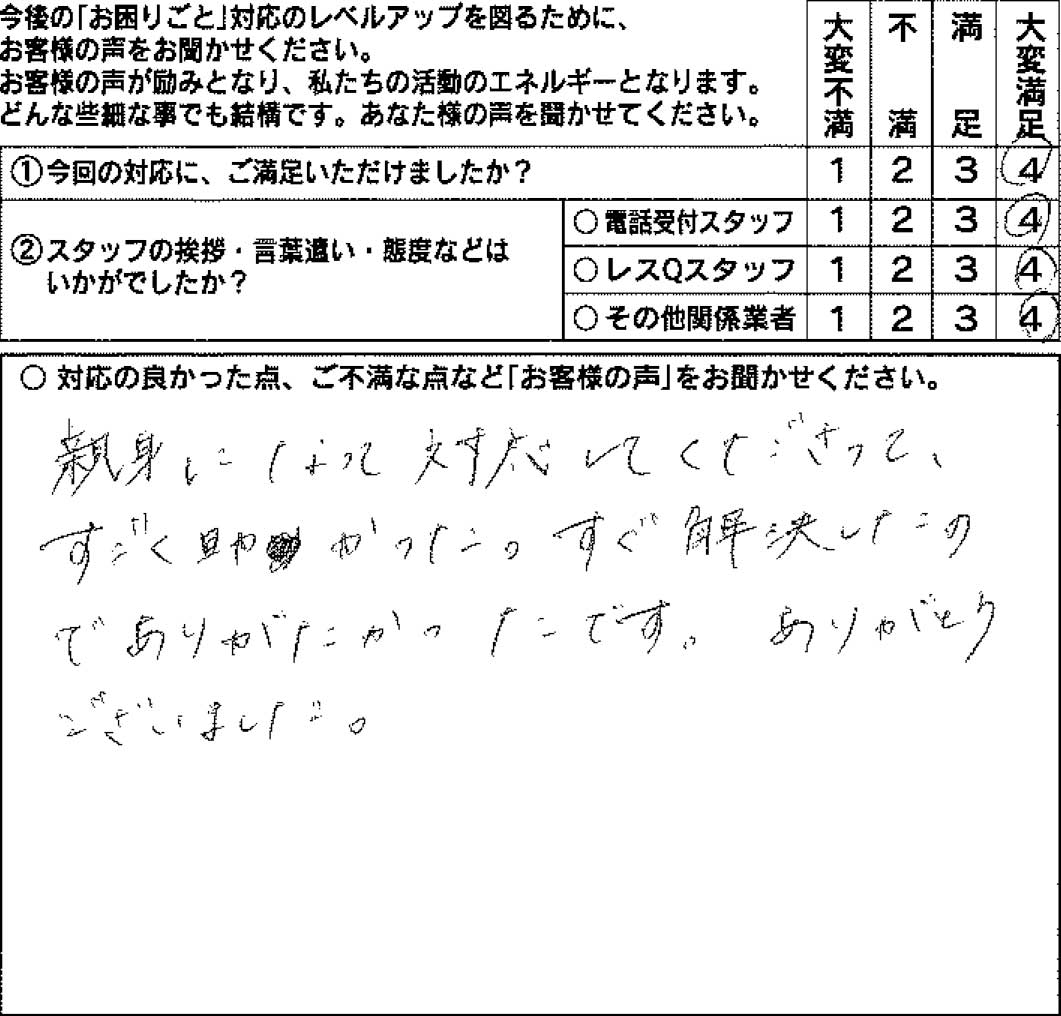 今後の「お困りごと」対応のレベルアップを図るために、
お客様の声をお聞かせください。
お客様の声が励みとなり、私たちの活動のエネルギーとなります。
どんな些細な事でも結構です。あなた様の声を聞かせてください。
大変不満 不満 満足 大変満足
①今回の対応に、ご満足いただけましたか? 1 2 3 4
②スタッフの挨拶・言葉遣い・態度などは
いかがでしたか?
○電話受付スタッフ 1 2 3 4
○レスQスタッフ 1 2 3 4
○その他関係業者 1 2 3 4
○ 対応の良かった点、ご不満な点など「お客様の声」をお聞かせください。
親身になって対応してくださって、
すごく助かった。すぐ解決したの
でありがたかったです。ありがとう
ございました。